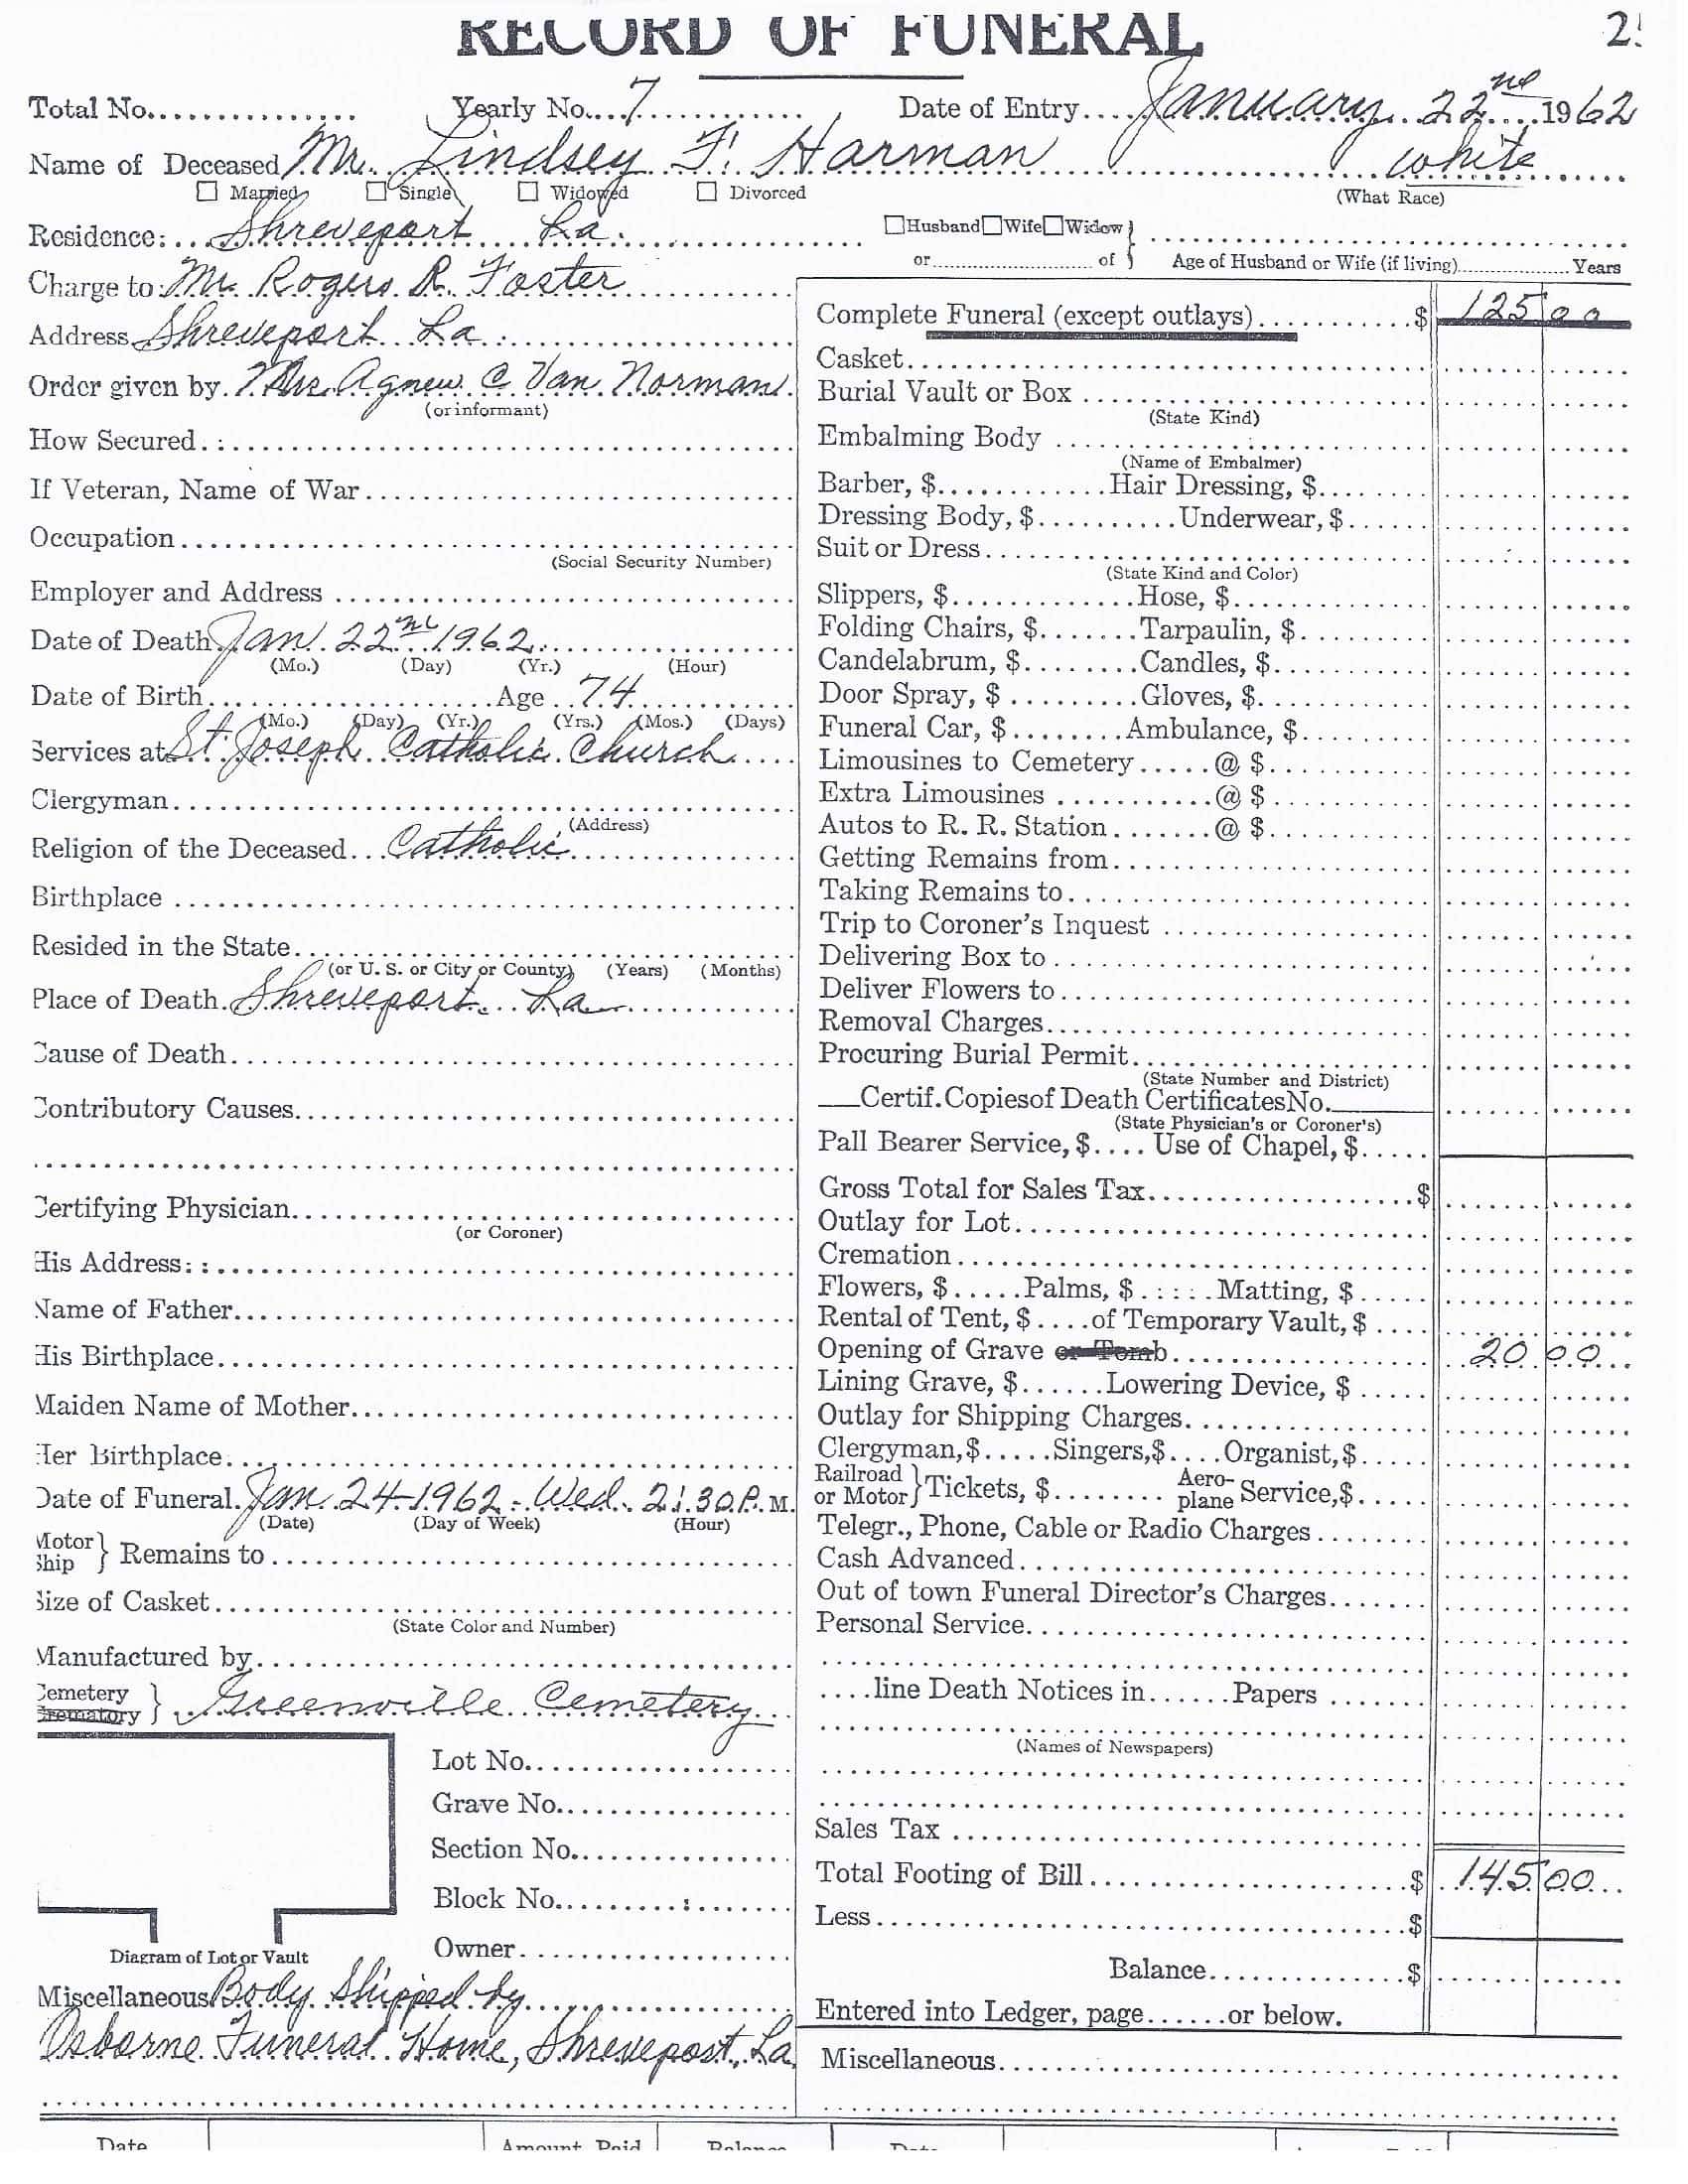 RECORD OF FUNERAL
Total No............... Yearly No...7............ Date of Entry....January 22nd 1962
Name of Deceased Mr. Lindsey F. Harman white
☐ Married ☐ Single ☐ Widowed ☐ Divorced (What Race)
Residence:...Shreveport La. ☐Husband☐Wife☐Widow }
or..............of } Age of Husband or Wife (if living)..............Years
Charge to: Mr. Rogers R. Foster
Address Shreveport La.
Order given by. Mrs. Agnew C Van Norman
(or informant)
How Secured
If Veteran, Name of War
Occupation
(Social Security Number)
Employer and Address
Date of Death Jan. 22nd 1962
(Mo.) (Day) (Yr.) (Hour)
Date of Birth..................Age 74
(Mo.) (Day) (Yr.) (Yrs.) (Mos.) (Days)
Services at St. Joseph Catholic Church
Clergyman
(Address)
Religion of the Deceased...Catholic
Birthplace
Resided in the State
(or U. S. or City or County) (Years) (Months)
Place of Death. Shreveport La
Cause of Death
Contributory Causes
Certifying Physician
(or Coroner)
His Address:
Name of Father
His Birthplace
Maiden Name of Mother
Her Birthplace
Date of Funeral. Jan. 24-1962-Wed. 2:30 P. M.
(Date) (Day of Week) (Hour)
Motor
Ship } Remains to
Size of Casket
(State Color and Number)
Manufactured by
Cemetery
Crematory } Greenville Cemetery
Lot No.
Grave No.
Section No.
Block No.
Owner
Diagram of Lot or Vault
Miscellaneous Body Shipped by
Osborne Funeral Home, Shreveport, La
Complete Funeral (except outlays)............$ 125 00
Casket
Burial Vault or Box
(State Kind)
Embalming Body
(Name of Embalmer)
Barber, $............Hair Dressing, $
Dressing Body, $..........Underwear, $
Suit or Dress
(State Kind and Color)
Slippers, $.............Hose, $
Folding Chairs, $.......Tarpaulin, $
Candelabrum, $........Candles, $
Door Spray, $..........Gloves, $
Funeral Car, $........Ambulance, $
Limousines to Cemetery.....@ $
Extra Limousines...........@ $
Autos to R. R. Station.......@ $
Getting Remains from
Taking Remains to
Trip to Coroner's Inquest
Delivering Box to
Deliver Flowers to
Removal Charges
Procuring Burial Permit
(State Number and District)
___Certif. Copies of Death Certificates No.________
(State Physician's or Coroner's)
Pall Bearer Service, $.... Use of Chapel, $
Gross Total for Sales Tax..................$
Outlay for Lot
Cremation
Flowers, $.....Palms, $.....Matting, $
Rental of Tent, $....of Temporary Vault, $
Opening of Grave or Tomb 20 00
Lining Grave, $......Lowering Device, $
Outlay for Shipping Charges
Clergyman,$.....Singers,$....Organist,$
Railroad
or Motor } Tickets, $........ Aero-
plane Service,$
Telegr., Phone, Cable or Radio Charges
Cash Advanced
Out of town Funeral Director's Charges
Personal Service
....line Death Notices in......Papers
(Names of Newspapers)
Sales Tax
Total Footing of Bill...................$ 145 00
Less...................$
Balance.............$
Entered into Ledger, page......or below.
Miscellaneous
Date Amount Paid Balance Date